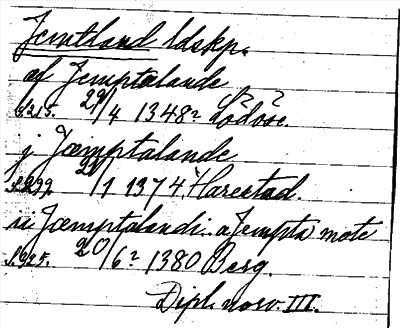 Jemtland ldskp.
af Jemptalande
S.215. 29/4 1348 Lödöse.
j Jæmptalande
S.299. 21/1 1374 Harestad.
ii Jæmptalandi. a Jempta mote
S.325. 20/6 1380 Berg.
Dipl. norv. III.